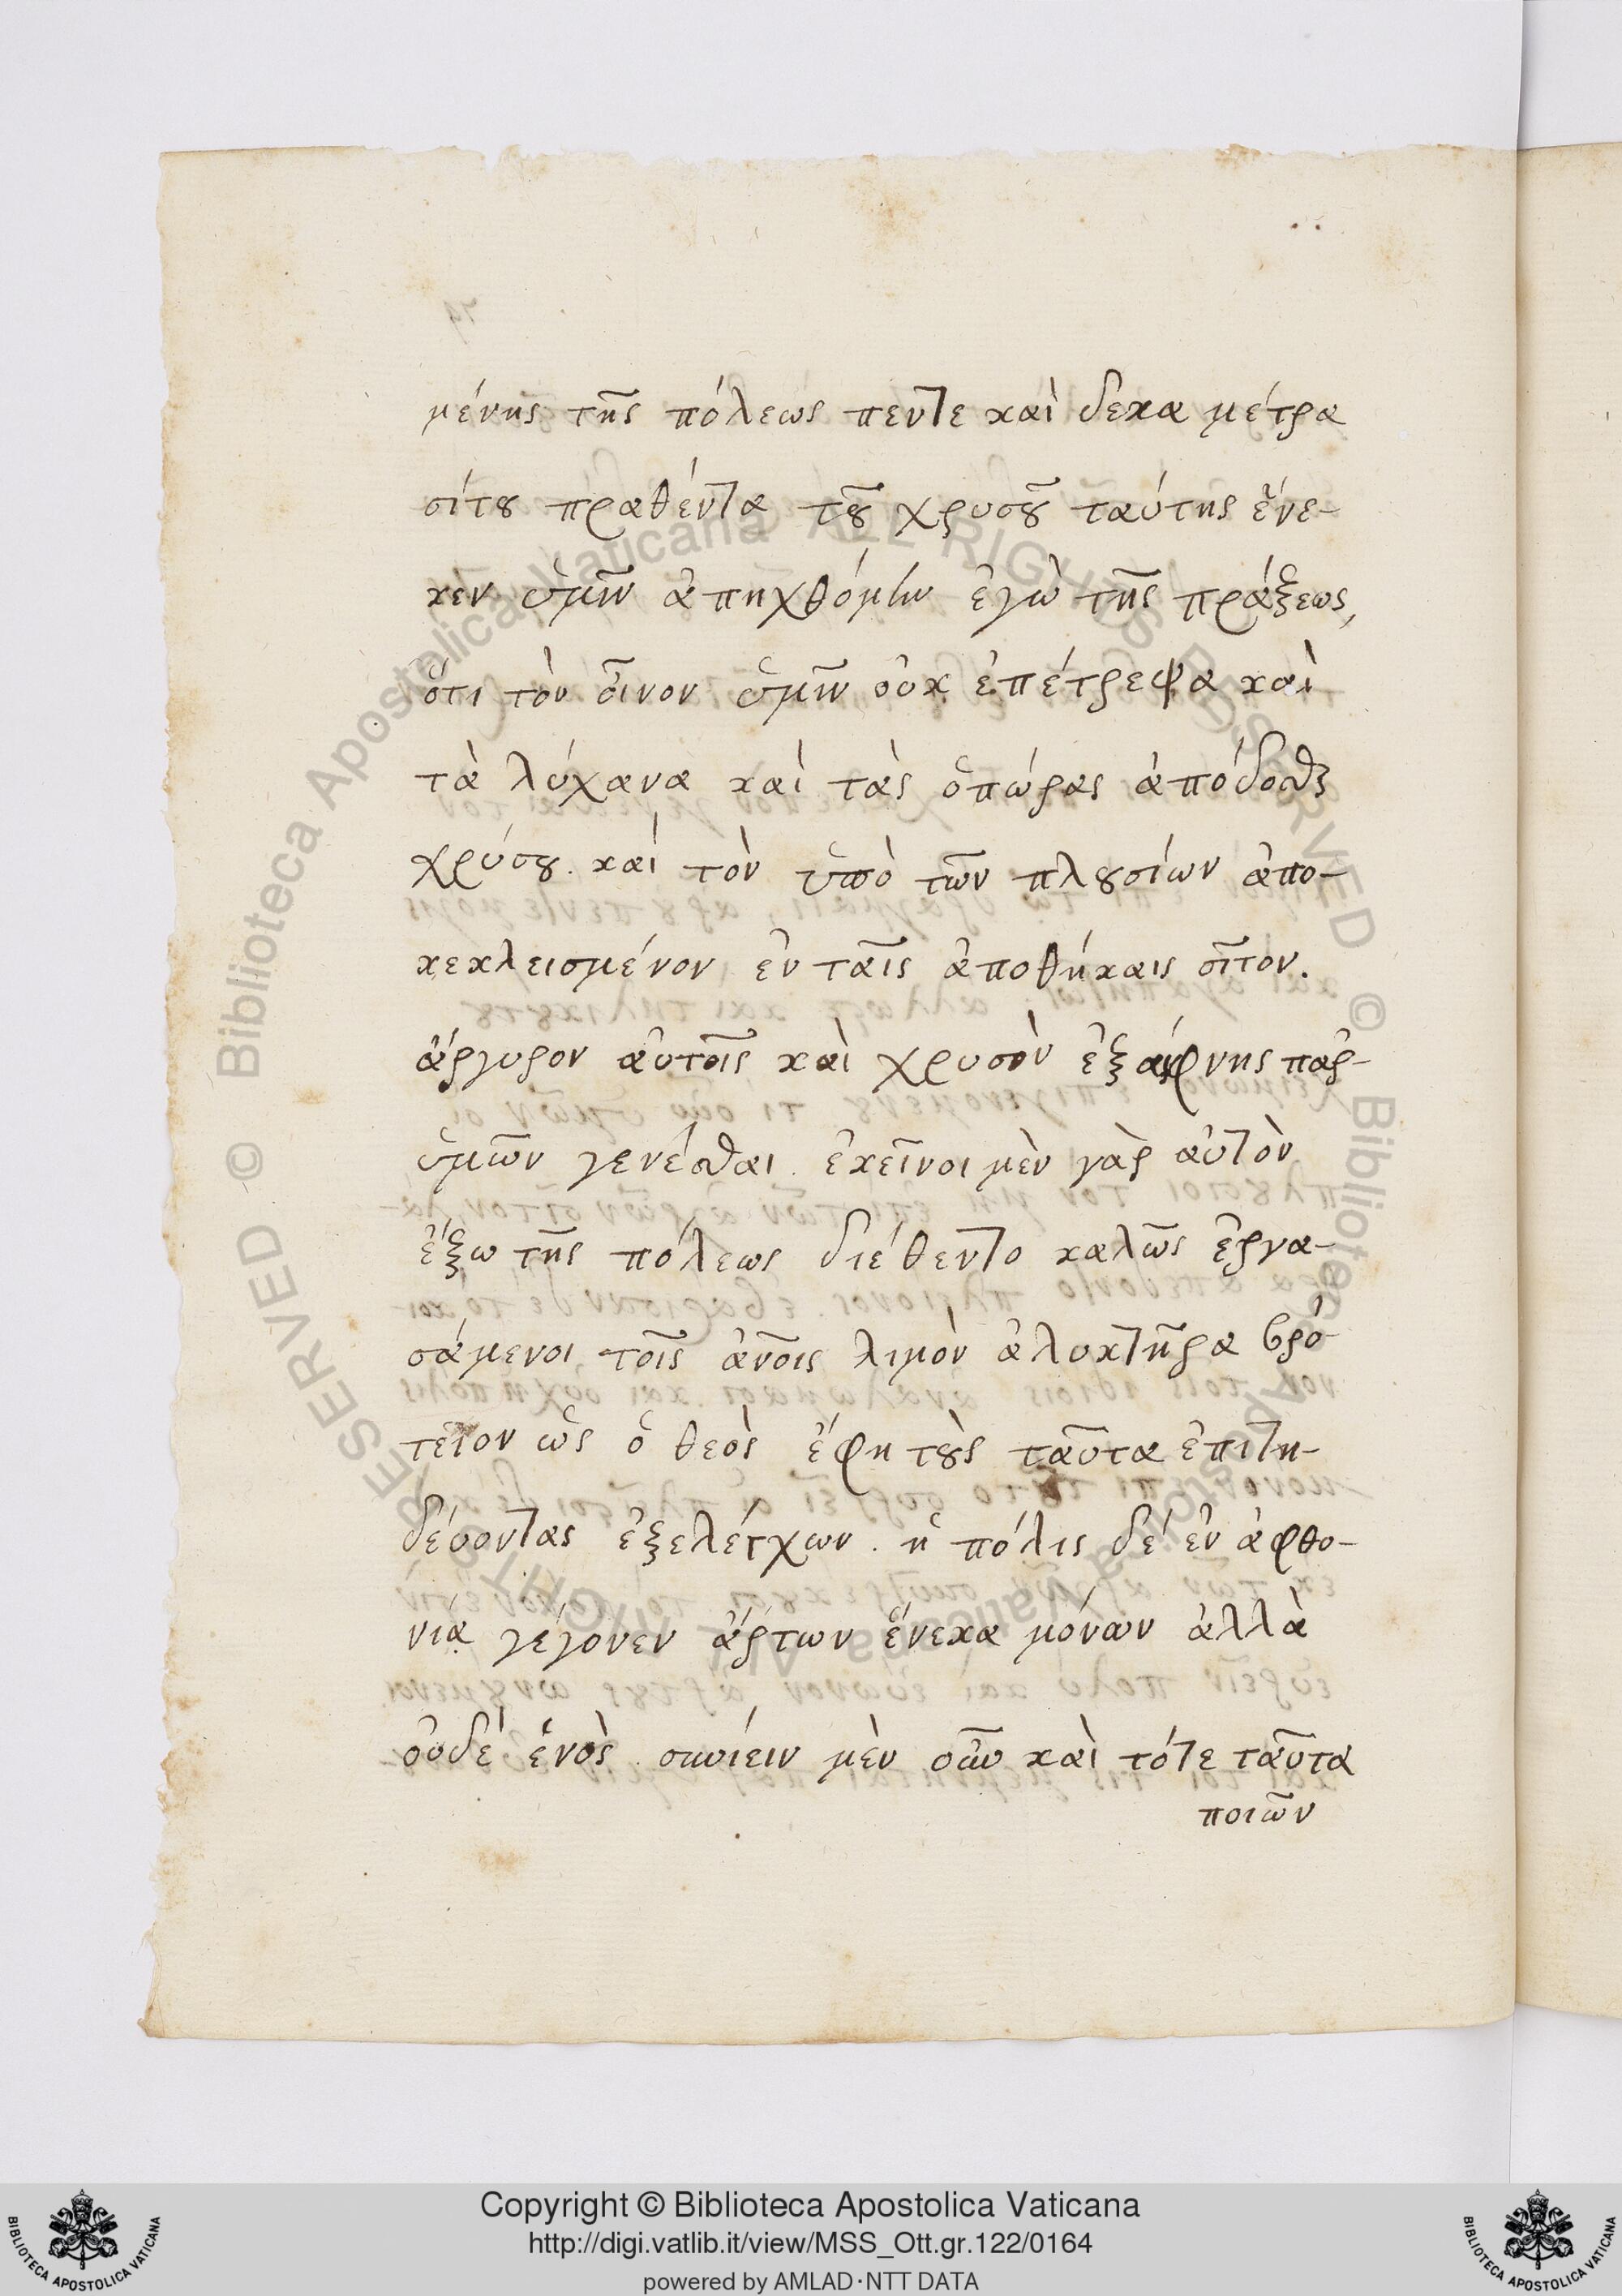 μένης τῆς πόλεως πεντε καὶ δεκα μέτρα
σίτου πραθέντα τοῦ χρυσοῦ ταύτης ἕνε-
κεν ὑμῖν ἀπηχθόμην ἐγὼ τῆς πράξεως,
ὅτι τὸν οἶνον ὑμῖν οὐκ ἐπέτρεψα καὶ
τὰ λύχανα καὶ τὰς ὀπώρας ἀπόδοσθε
χρύσου. καὶ τὸν ὑπὸ τῶν πλουσίων ἀπο-
κεκλεισμένον ἐν ταῖς ἀποθήκαις σῖτον.
ἄργυρον αὐτοῖς καὶ χρυσὸν ἐξαίφνης παρ-
ὑμῶν γενέσθαι. ἐκεῖνοι μὲν γὰρ αὐτὸν
ἔξω τῆς πόλεως διέθεντο καλῶς ἐργα-
σάμενοι τοῖς ἀνοις λιμὸν ἀλυκτῆρα βρό-
τειον ὡς ὁ θεὸς ἔφη τοὺς ταῦτα ἐπιτη-
δέυοντας ἐξελέγχων. ἡ πόλις δὲ ἐν ἀφθο-
νία γέγονεν ἄρτων ἕνεκα μόνων ἀλλὰ
οὐδὲ ἑνὸς. συνίειν μὲν οὖν καὶ τότε ταῦτα
ποιῶν
Copyright © Biblioteca Apostolica Vaticana
http://digi.vatlib.it/view/MSS_Ott.gr.122/0164
powered by AMLAD·NTT DATA